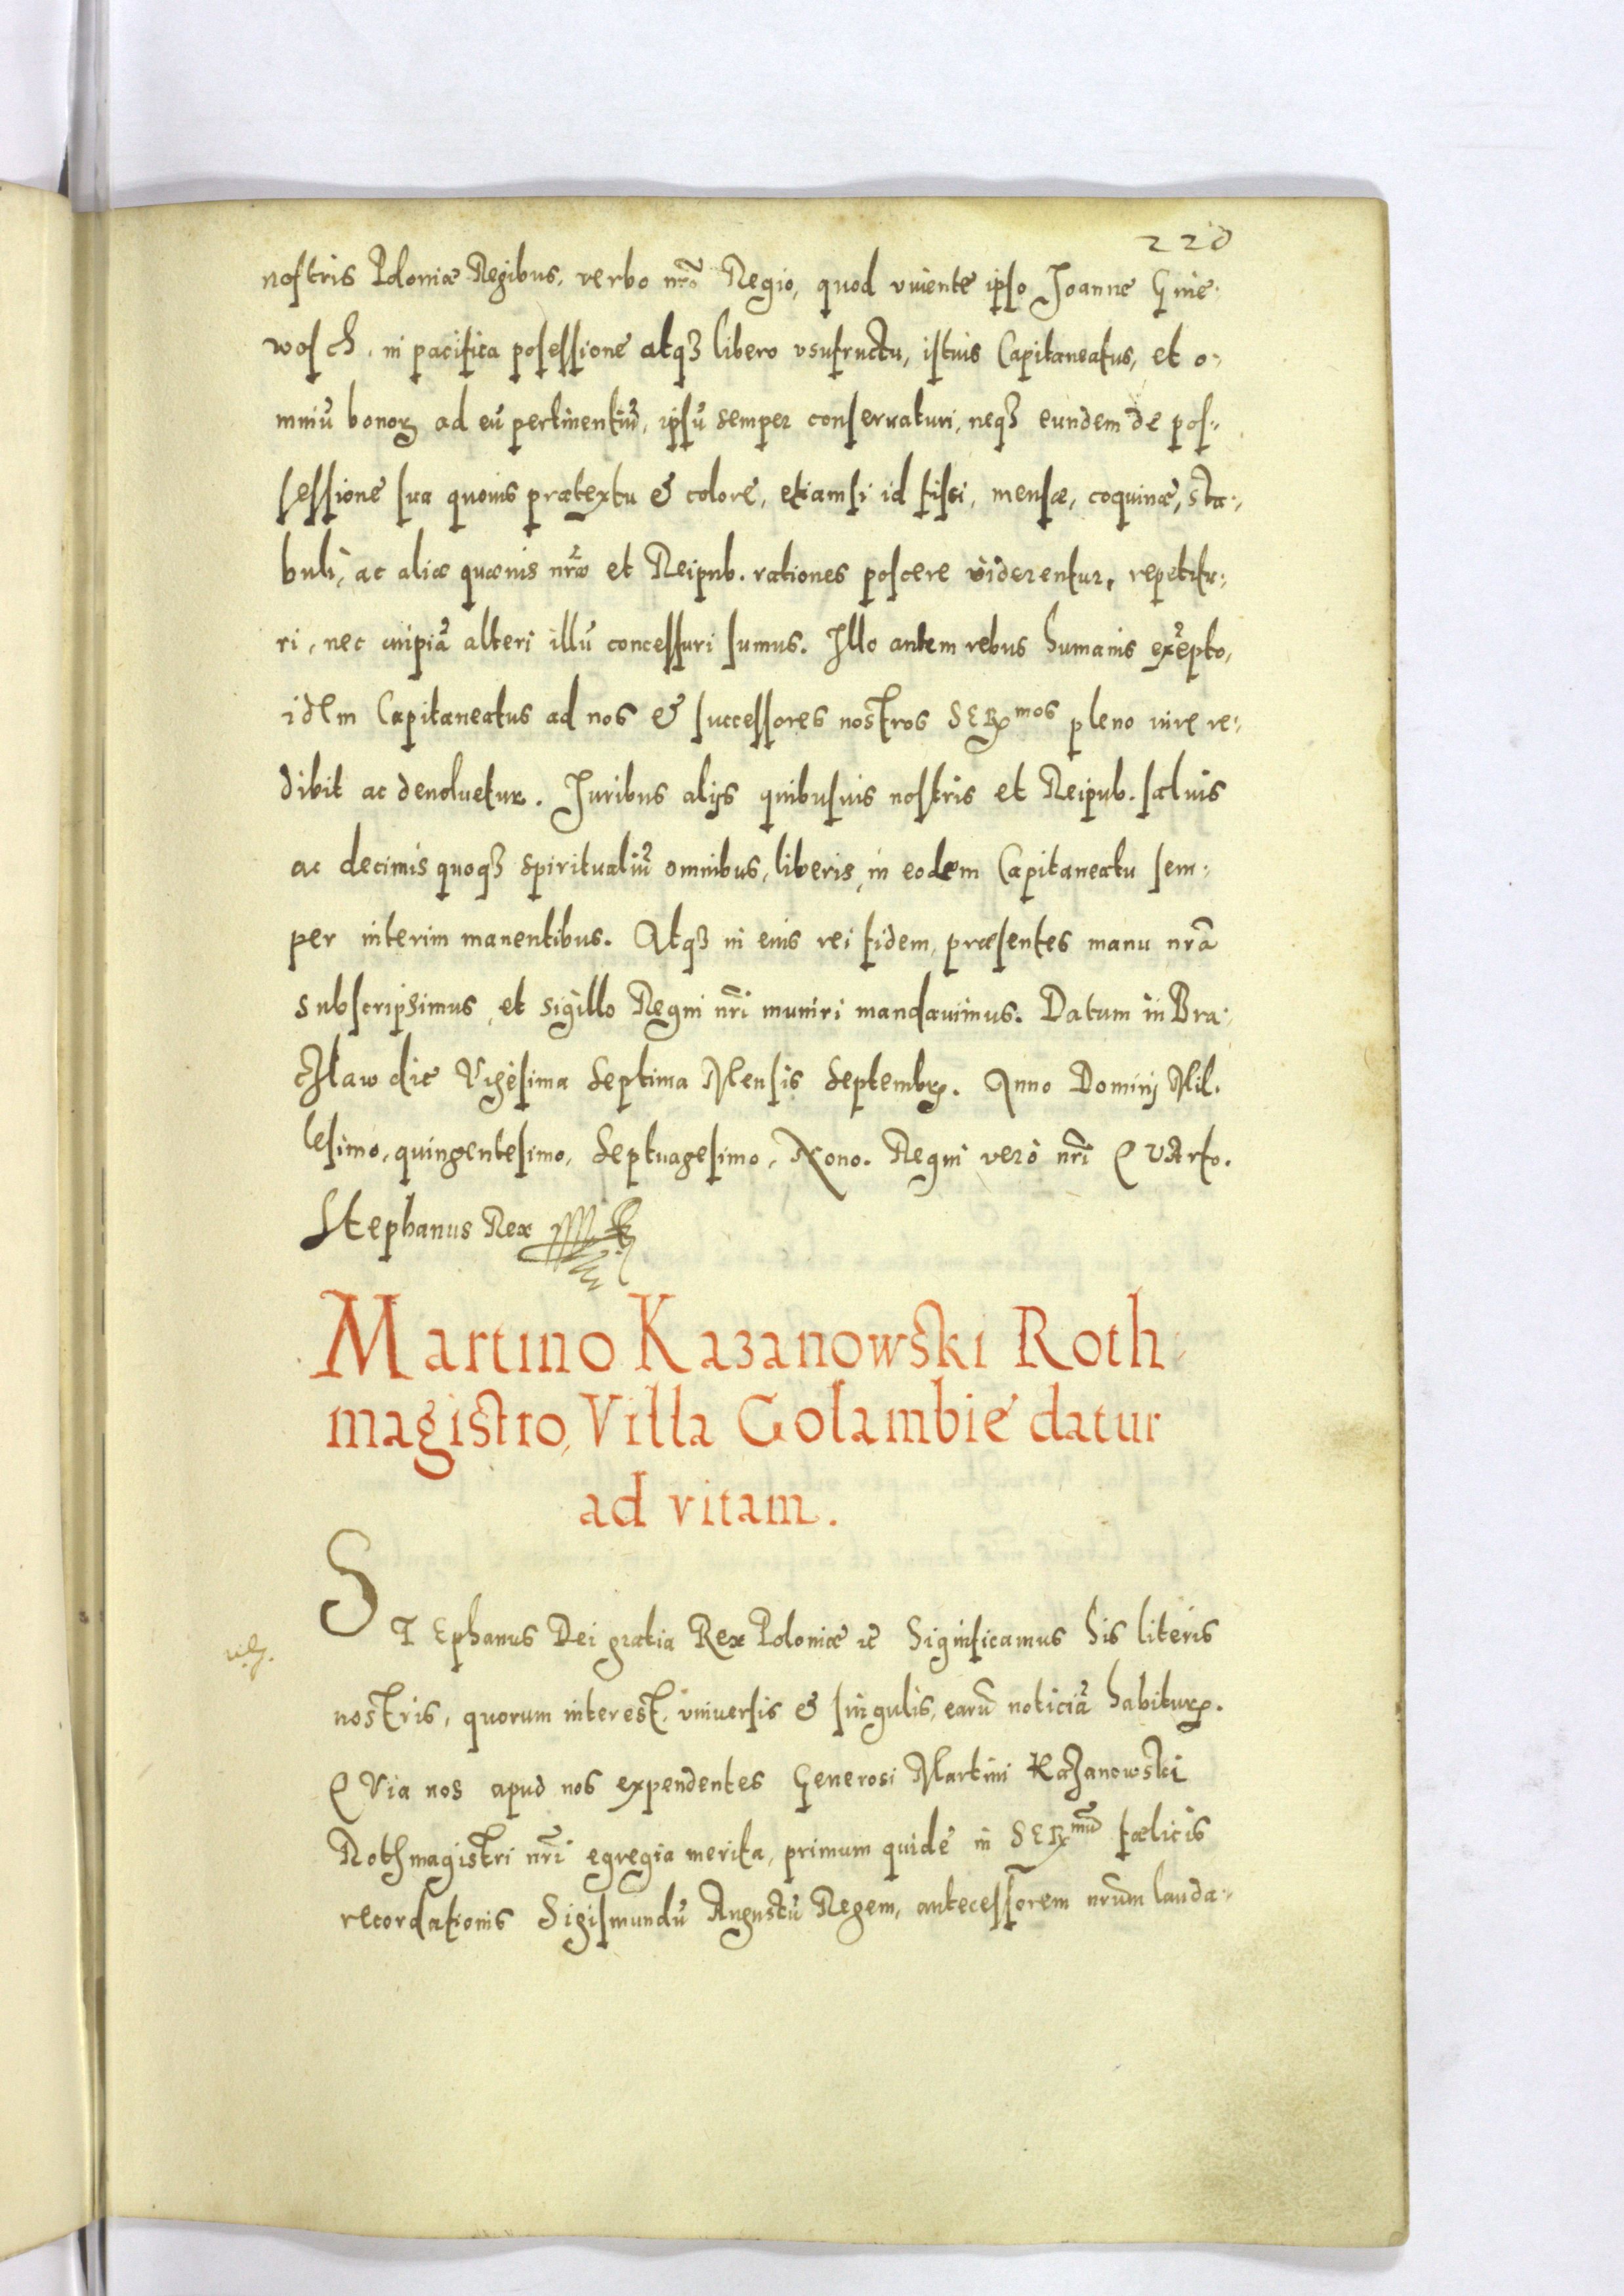 220
nostris Poloniæ Regibus, verbo nr̃o Regio, quod viuente ipso Joanne Gnie-
wosch, in pacifica posessione atqꝫ libero vsufructu, istuis Capitaneatus, et o-
mniũ bonoꝝ ad eũ pertinentiũ, ipsũ semper conseruaturi, neqꝫ eundem de pos-
sessione sua quouis prætextu & colore, etiamsi id fisci, mensæ, coquinæ, sta-
buli, ac aliæ quæuis nr̃æ et Reipub. rationes poscere viderentur, repetitu-
ri, nec cuipiã alteri illũ concessuri sumus. Illo autem rebus humanis exẽpto,
idem Capitaneatus ad nos & successores nostros SERmos pleno iure re-
dibit ac deuoluetur. Juribus alijs quibusuis nostris et Reipub. saluis
ac decimis quoqꝫ spiritualiũ omnibus, liberis, in eodem Capitaneatu sem-
per interim manentibus. Atqꝫ in eius rei fidem, præsentes manu nr̃a
subscripsimus, et sigillo Regni nr̃i muniri mandauimus. Datum in Bra-
czlaw die Vigesima Septima Mensis Septembꝝ. Anno Dominj Mil-
lesimo, quingentesimo, Septuagesimo, Nono. Regni verò nr̃i QVArto.
Stephanus Rex
Martino Kazanowski Roth-
magistro, Villa Golambie datur
ad vitam.
STEphanus Dei gratia Rex Poloniæ ꝛc Significamus his literis
nostris, quorum interest, vniuersis & singulis, earũ noticiã habituꝝ.
QVia nos apud nos expendentes Generosi Martini Kazanowski
Rothmagistri nr̃i egregia merita, primum quidẽ in SERmũ fœlicis
recordationis Sigismundũ Augustũ Regem, antecessorem nr̃um lauda-